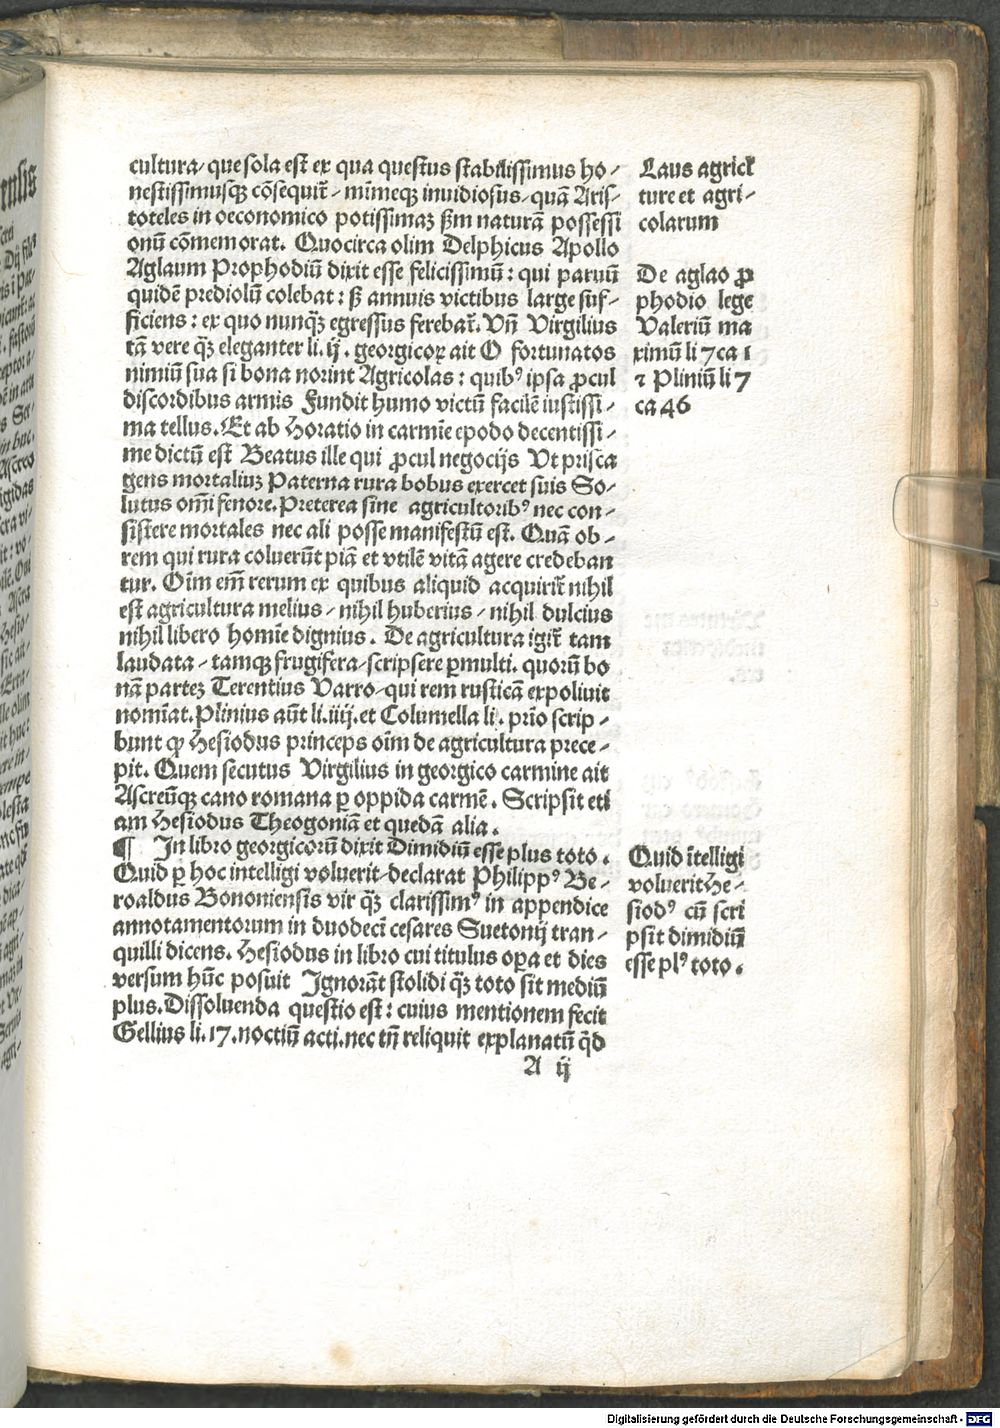 cultura, que sola est ex qua questus stabilissimus ho-
nestissimusqꝫ cōsequit᷑, mīmeqꝫ inuidiosus, quā Aris-
toteles in oeconomico potissimaꝫ ẜm naturā possessi
onū cōmemorat. Quocirca olim Delphicus Apollo
Aglaum Prophodiū dixit esse felicissimū: qui paruū
quidē prediolū colebat: sꝫ annuis victibus large suf-
ficiens: ex quo nunqꝫ̄ egressus ferebat᷑. Vn̄ Virgilius
tā vere qꝫ̄ eleganter li. ij. georgicoꝝ ait O fortunatos
nimiū sua si bona norint Agricolas: quibꝰ ipsa ꝓcul
discordibus armis Fundit humo victū facilē iustissi-
ma tellus. Et ab Horatio in carmīe epodo decentissi-
me dictū est Beatus ille qui ꝓcul negocijs Vt prisca
gens mortaliuꝫ Paterna rura bobus exercet suis So-
lutus om̄i fenore. Preterea sine agricultoribꝰ nec con-
sistere mortales nec ali posse manifestū est. Quā ob-
rem qui rura coluerūt piā et vtilē vitā agere credeban
tur. Oīm em̄ rerum ex quibus aliquid acquirit᷑ nihil
est agricultura melius, nihil huberius, nihil dulcius
nihil libero homīe dignius. De agricultura igit᷑ tam
laudata, tamqꝫ frugifera, scripsere ꝑmulti. quorū bo
nā parteꝫ Terentius Varro, qui rem rusticā expoliuit
nomīat. Plinius aūt li. iiij. et Columella li. prīo scrip-
bunt ꝙ Hesiodus princeps oīm de agricultura prece-
pit. Quem secutus Virgilius in georgico carmine ait
Ascreūqꝫ cano romana ꝑ oppida carmē. Scripsit eti
am Hesiodus Theogoniā et quedā alia.
¶ In libro georgicorū dixit Dimidiū esse plus toto.
Quid ꝑ hoc intelligi voluerit, declarat Philippꝰ Be-
roaldus Bononiensis vir qꝫ̄ clarissimꝰ in appendice
annotamentorum in duodecī cesares Suetonij tran-
quilli dicens. Hesiodus in libro cui titulus oꝑa et dies
versum hūc posuit Jgnorāt stolidi qꝫ̄ toto sit mediū
plus. Dissoluenda questio est: cuius mentionem fecit
Gellius li. 17. noctiū acti. nec tn̄ reliquit explanatū q̄d
A ij
Laus agricł
ture et agri-
colarum
De aglao ꝓ
phodio lege
Valeriū ma
ximū li 7 ca 1
⁊ Pliniū li 7
ca 46
Quid ītelligi
voluerit He-
siodꝰ cū scri
psit dimidiū
esse plꝰ toto.
Digitalisierung gefördert durch die Deutsche Forschungsgemeinschaft - DFG